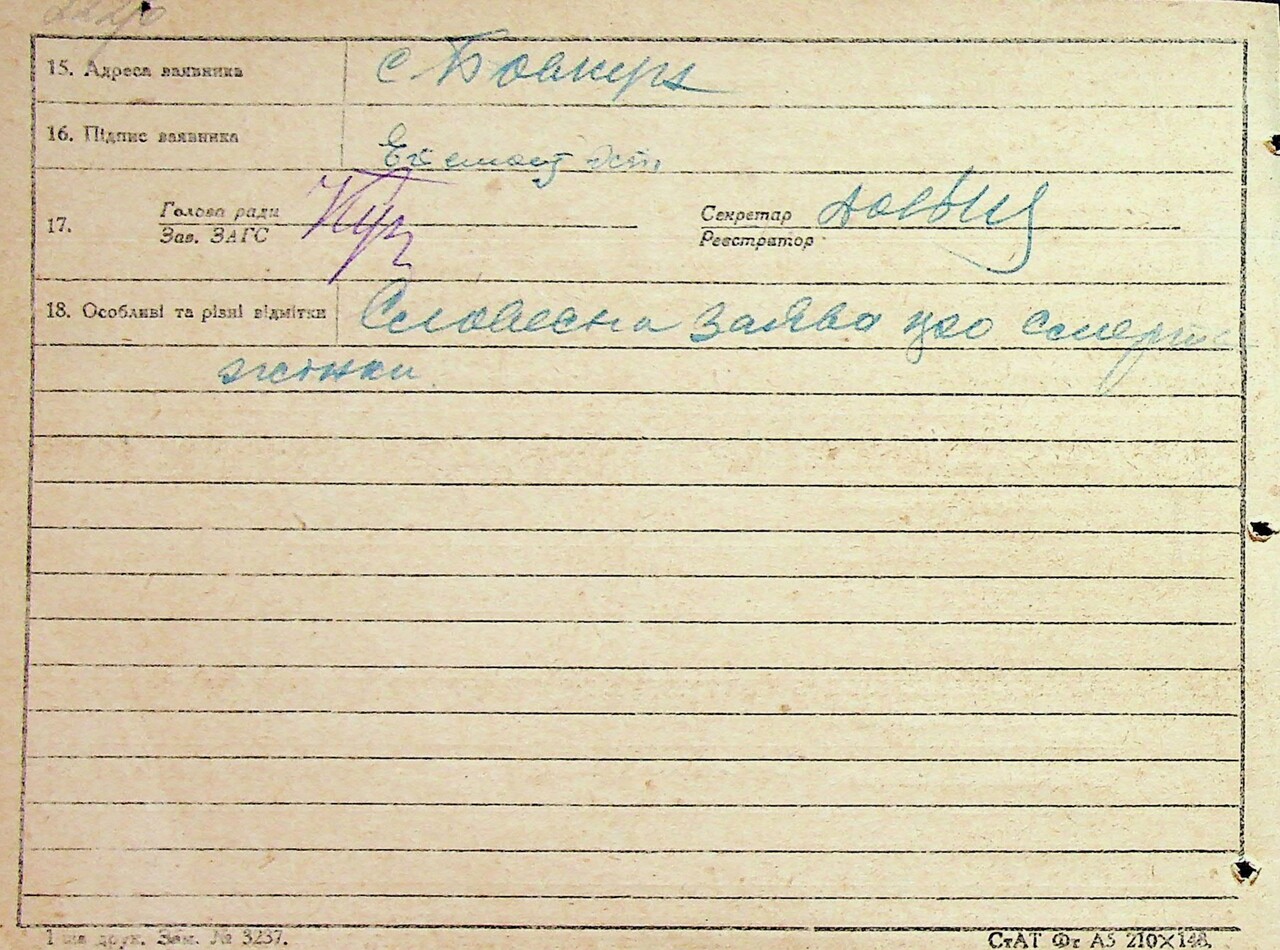 15. Адреса заявника с Бовкуры
16. Підпис заявника
17. Голова ради
Зав. ЗАГС
Секретар
Реєстратор
18. Особливі та різні відмітки Словесна заява про смерть
жінки
друк. Зам. № 3237.
СтАТ Фт А5 210×148.